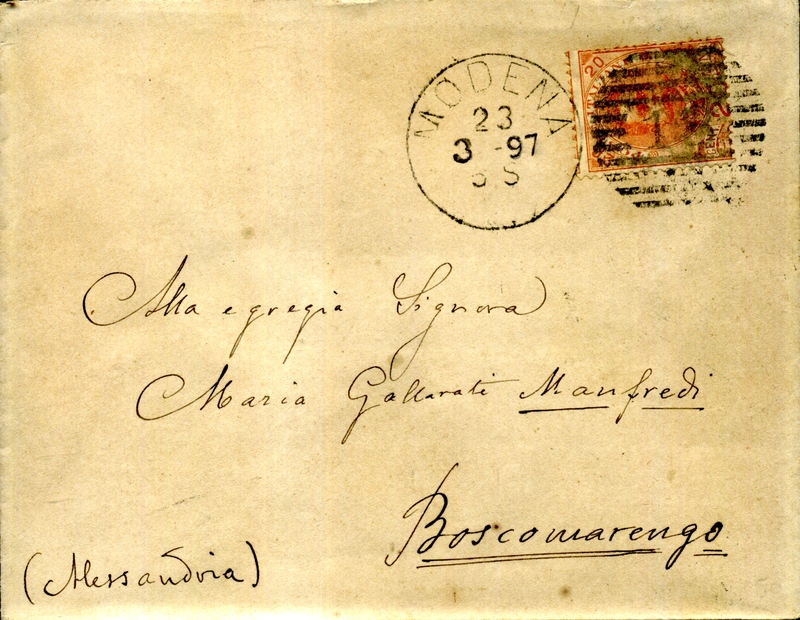 MODENA
23
3 -97
20
Alla egregia Signora
Maria Gallarati Manfredi
Boscomarengo
(Alessandria)